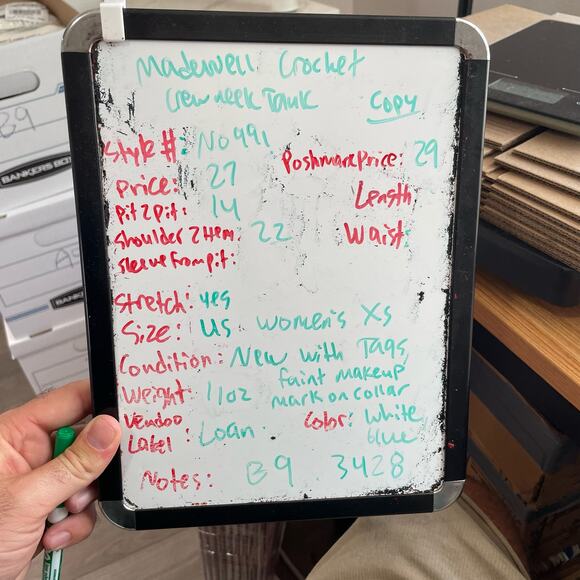 Madewell Crochet
Crew neek Tank
Copy
Style #: No991
Poshmark Price: 29
Price: 27
Length
Pit 2 pit: 14
Waist:
Shoulder 2 Hem: 22
Sleeve from pit:
Stretch: yes
Size: US women's Xs
Condition: New with Tags,
faint makeup
mark on collar
Weight: 11oz
Color: White
blue
Vendoo
Label: Loan
Notes: B9 3428
B9
BANKERS BOX
BANK